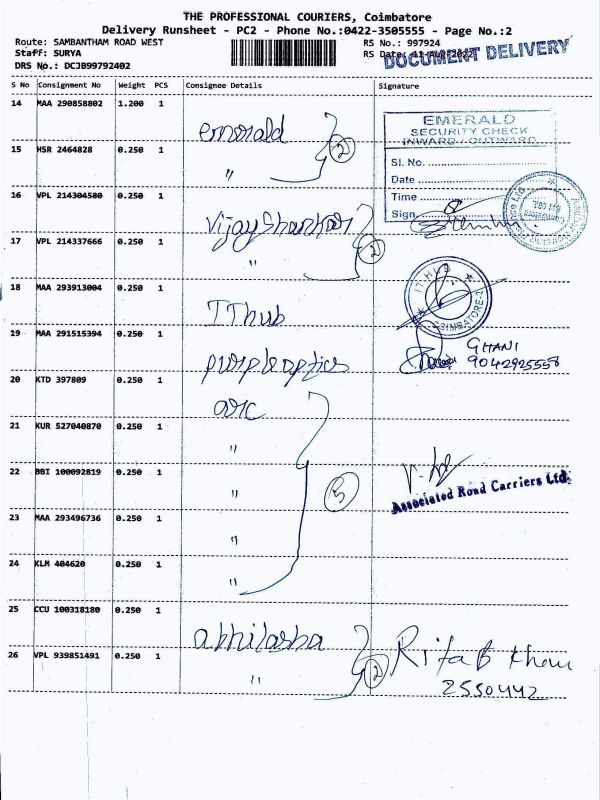 THE PROFESSIONAL COURIERS, Coimbatore
Delivery Runsheet - PC2 - Phone No.:0422-3505555 - Page No.:2
Route: SAMBANTHAM ROAD WEST
RS No.: 997924
Staff: SURYA
RS Date: 11-AUG-2022
DOCUMENT DELIVERY
DRS No.: DCJB99792402
S No Consignment No Weight PCS Consignee Details Signature
14 MAA 290858802 1.200 1 emerald
2
15 HSR 2464828 0.250 1 "
EMERALD
SECURITY CHECK
INWARD / OUTWARD
Sl. No.
Date
Time
Sign
16 VPL 214304580 0.250 1 Vijay Shankar
2
17 VPL 214337666 0.250 1 "
18 MAA 293913004 0.250 1 IThub
ITHUB
COIMBATORE-2
19 MAA 291515394 0.250 1 purple optics
GHANI
9042925558
20 KTD 397809 0.250 1 arc
21 KUR 527040870 0.250 1 "
22 BBI 100092819 0.250 1 "
5
Associated Road Carriers Ltd.
23 MAA 293496736 0.250 1 "
24 KLM 404620 0.250 1 "
25 CCU 100318180 0.250 1 abhilasha
2
Rita B Khan
2550442
26 VPL 939851491 0.250 1 "